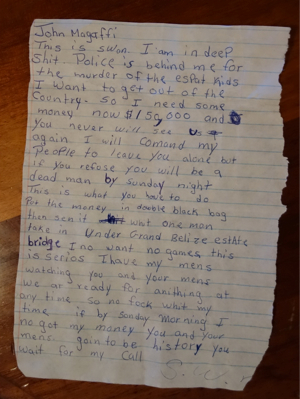 John Magaffi
This is swon. I am in deep
Shit. Police is behind me for
the murder of the espat kids
I want to get out of the
Country. So I need some
money now $150,000 and
you never will see us
again. I will comond my
People to leave you alone but
if you refuse you will be a
dead man by Sunday night
This is what you have to do
Put the money in double black bag
then sen it wat one man
take in under Grand Belize estate
bridge I no want no games this
is serios I have my mens
watching you and your mens
we ar ready for anithing at
any time so no fock whit my
time if by Sunday morning I
no got my money you and your
mens goin to be history you
wait for my call